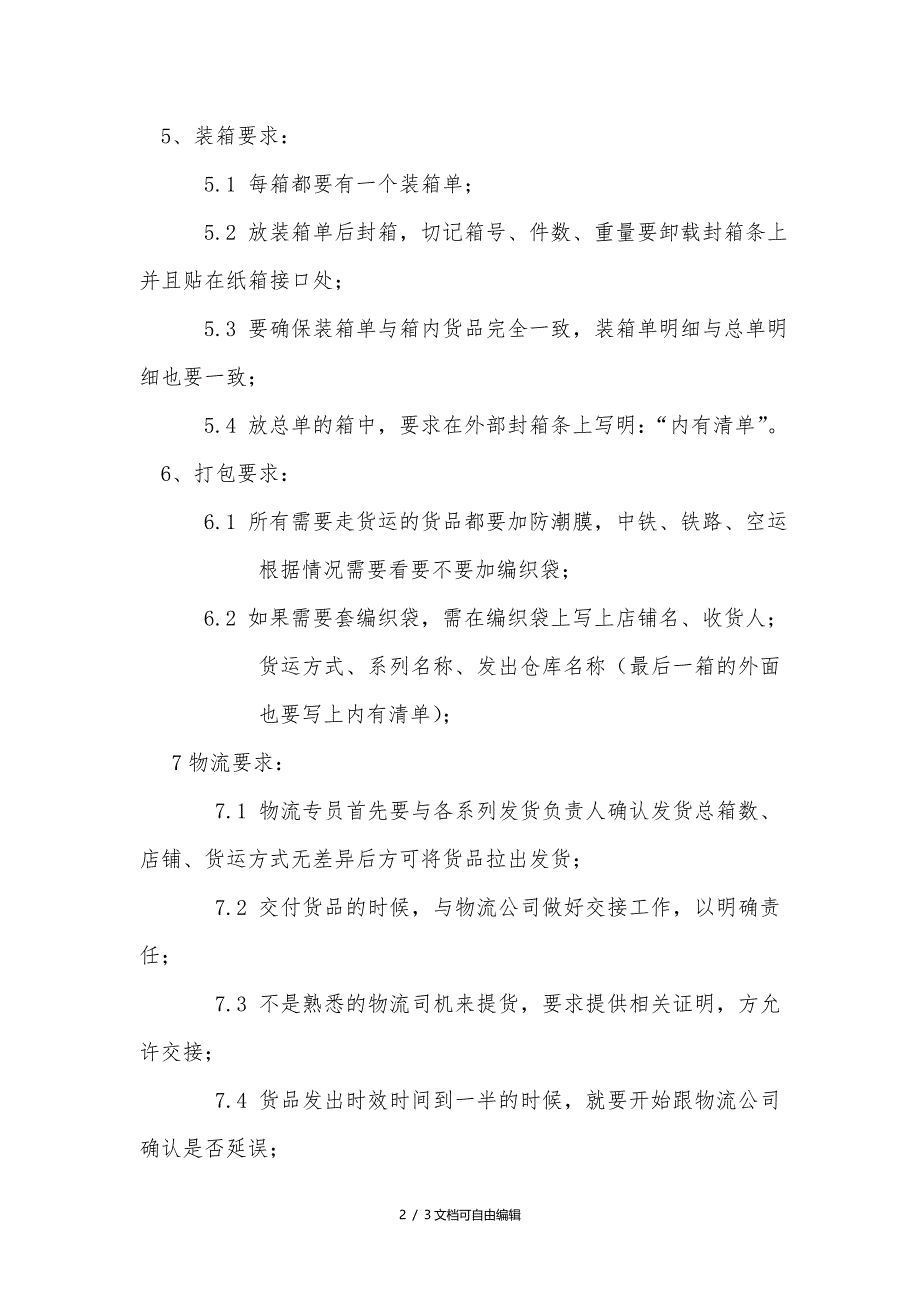 5、装箱要求：
5.1 每箱都要有一个装箱单；
5.2 放装箱单后封箱，切记箱号、件数、重量要卸载封箱条上
并且贴在纸箱接口处；
5.3 要确保装箱单与箱内货品完全一致，装箱单明细与总单明
细也要一致；
5.4 放总单的箱中，要求在外部封箱条上写明：“内有清单”。
6、打包要求：
6.1 所有需要走货运的货品都要加防潮膜，中铁、铁路、空运
根据情况需要看要不要加编织袋；
6.2 如果需要套编织袋，需在编织袋上写上店铺名、收货人；
货运方式、系列名称、发出仓库名称（最后一箱的外面
也要写上内有清单）；
7 物流要求：
7.1 物流专员首先要与各系列发货负责人确认发货总箱数、
店铺、货运方式无差异后方可将货品拉出发货；
7.2 交付货品的时候，与物流公司做好交接工作，以明确责
任；
7.3 不是熟悉的物流司机来提货，要求提供相关证明，方允
许交接；
7.4 货品发出时效时间到一半的时候，就要开始跟物流公司
确认是否延误；
2 / 3文档可自由编辑